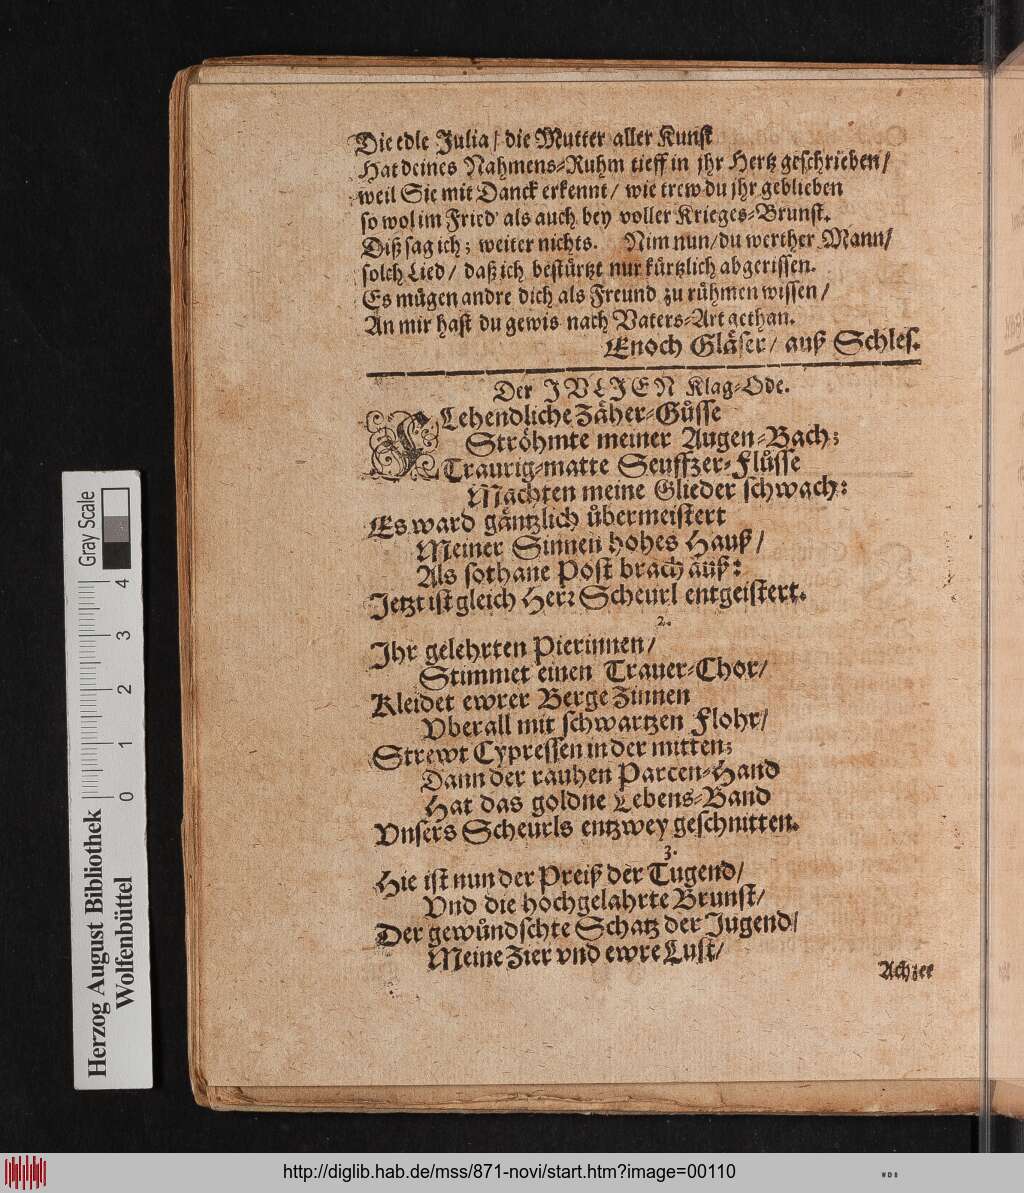 Die edle Julia / die Mutter aller Kunst
Hat deines Nahmens-Ruhm tieff in jhr Hertz geschrieben /
weil Sie mit Danck erkennt / wie trew du jhr geblieben
so wol im Fried' als auch bey voller Krieges-Brunst.
Diß sag ich; weiter nichts. Nim nun / du werther Mann /
solch Lied / daß ich bestürtzt nur kürtzlich abgerissen.
Es mügen andre dich als Freund zu rühmen wissen /
An mir hast du gewis nach Vaters-Art gethan.
Enoch Gläser / auß Schles.
Der JVLIEN Klag-Ode.
Lehendliche Zäher-Güsse
Ströhmte meiner Augen-Bach;
Traurig-matte Seuffzer-Flüsse
Machten meine Glieder schwach:
Es ward gäntzlich übermeistert
Meiner Sinnen hohes Hauß /
Als sothane Post brach auß:
Jetzt ist gleich Herr Scheurl entgeistert.
2.
Ihr gelehrten Pierinnen /
Stimmet einen Trauer-Chor /
Kleidet ewrer Berge Zinnen
Vberall mit schwartzen Flohr /
Strewt Cypressen in der mitten;
Dann der rauhen Parcen-Hand
Hat das goldne Lebens-Band
Vnsers Scheurls entzwey geschnitten.
3.
Hie ist nun der Preiß der Tugend /
Vnd die hochgelahrte Brunst /
Der gewündschte Schatz der Jugend /
Meine Zier vnd ewre Lust /
0 1 2 3 4 Gray Scale
Herzog August Bibliothek
Wolfenbüttel
http://diglib.hab.de/mss/871-novi/start.htm?image=00110